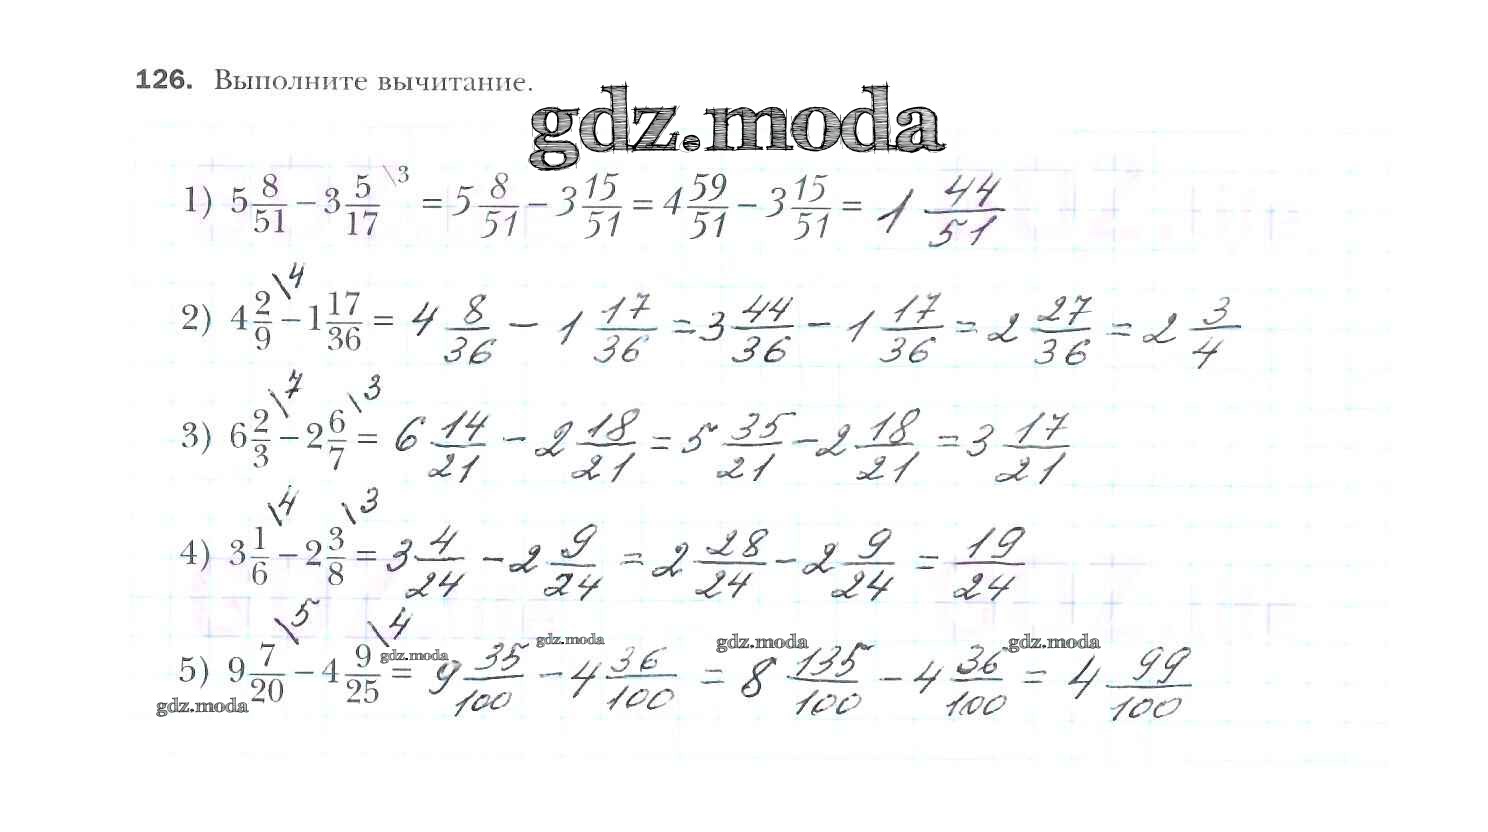 126. Выполните вычитание.
gdz.moda
1) 5 8/51 − 3 5/17 \3 = 5 8/51 − 3 15/51 = 4 59/51 − 3 15/51 = 1 44/51
2) 4 2/9 \4 − 1 17/36 = 4 8/36 − 1 17/36 = 3 44/36 − 1 17/36 = 2 27/36 = 2 3/4
3) 6 2/3 \7 − 2 6/7 \3 = 6 14/21 − 2 18/21 = 5 35/21 − 2 18/21 = 3 17/21
4) 3 1/6 \4 − 2 3/8 \3 = 3 4/24 − 2 9/24 = 2 28/24 − 2 9/24 = 19/24
5) 9 7/20 \5 − 4 9/25 \4 = 9 35/100 − 4 36/100 = 8 135/100 − 4 36/100 = 4 99/100
gdz.moda gdz.moda gdz.moda gdz.moda gdz.moda